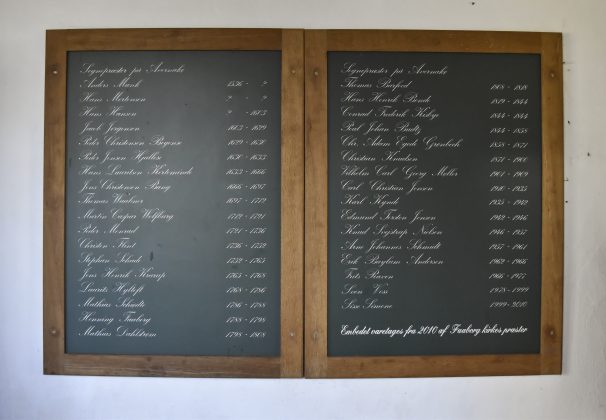 Sognepræster på Avernakø
Anders Munk 1536 - ?
Hans Mortensen ? - ?
Hans Hansen ? - 1603
Jacob Jørgensen 1603 - 1619
Peder Christensen Bogense 1619 - 1630
Peder Jensen Hjallese 1630 - 1633
Hans Lauritsen Kerteminde 1633 - 1666
Jens Christensen Bang 1666 - 1697
Thomas 1697 - 1712
Martin Casper Wolfburg 1712 - 1721
Peder Monrad 1721 - 1736
Christen Flint 1736 - 1752
Stephan 1752 - 1765
Jens Henrik Krarup 1765 - 1768
Laurits Hyltoft 1768 - 1786
Mathias Schmidt 1786 - 1788
Henning Faaborg 1788 - 1798
Mathias Dahlstrøm 1798 - 1808
Sognepræster på Avernakø
Thomas Barfoed 1808 - 1818
Hans Henrik Bende 1819 - 1844
Conrad Frederik 1844 - 1844
Poul Johan Buultz 1844 - 1858
Chr. Adam Egede Grønbech 1858 - 1871
Christian Knudsen 1871 - 1900
Vilhelm Carl Georg Møller 1901 - 1909
Carl Christian Jensen 1910 - 1935
Karl Kynde 1935 - 1942
Edmund Torsten Jensen 1942 - 1946
Knud Segstrup Nielsen 1946 - 1957
Arne Johannes Schmidt 1957 - 1961
Erik Boybem Andersen 1962 - 1966
Frits Raven 1966 - 1977
Sven Voss 1978 - 1999
Sisse Simone 1999 - 2010
Embedet varetages fra 2010 af Faaborg kirkes præster